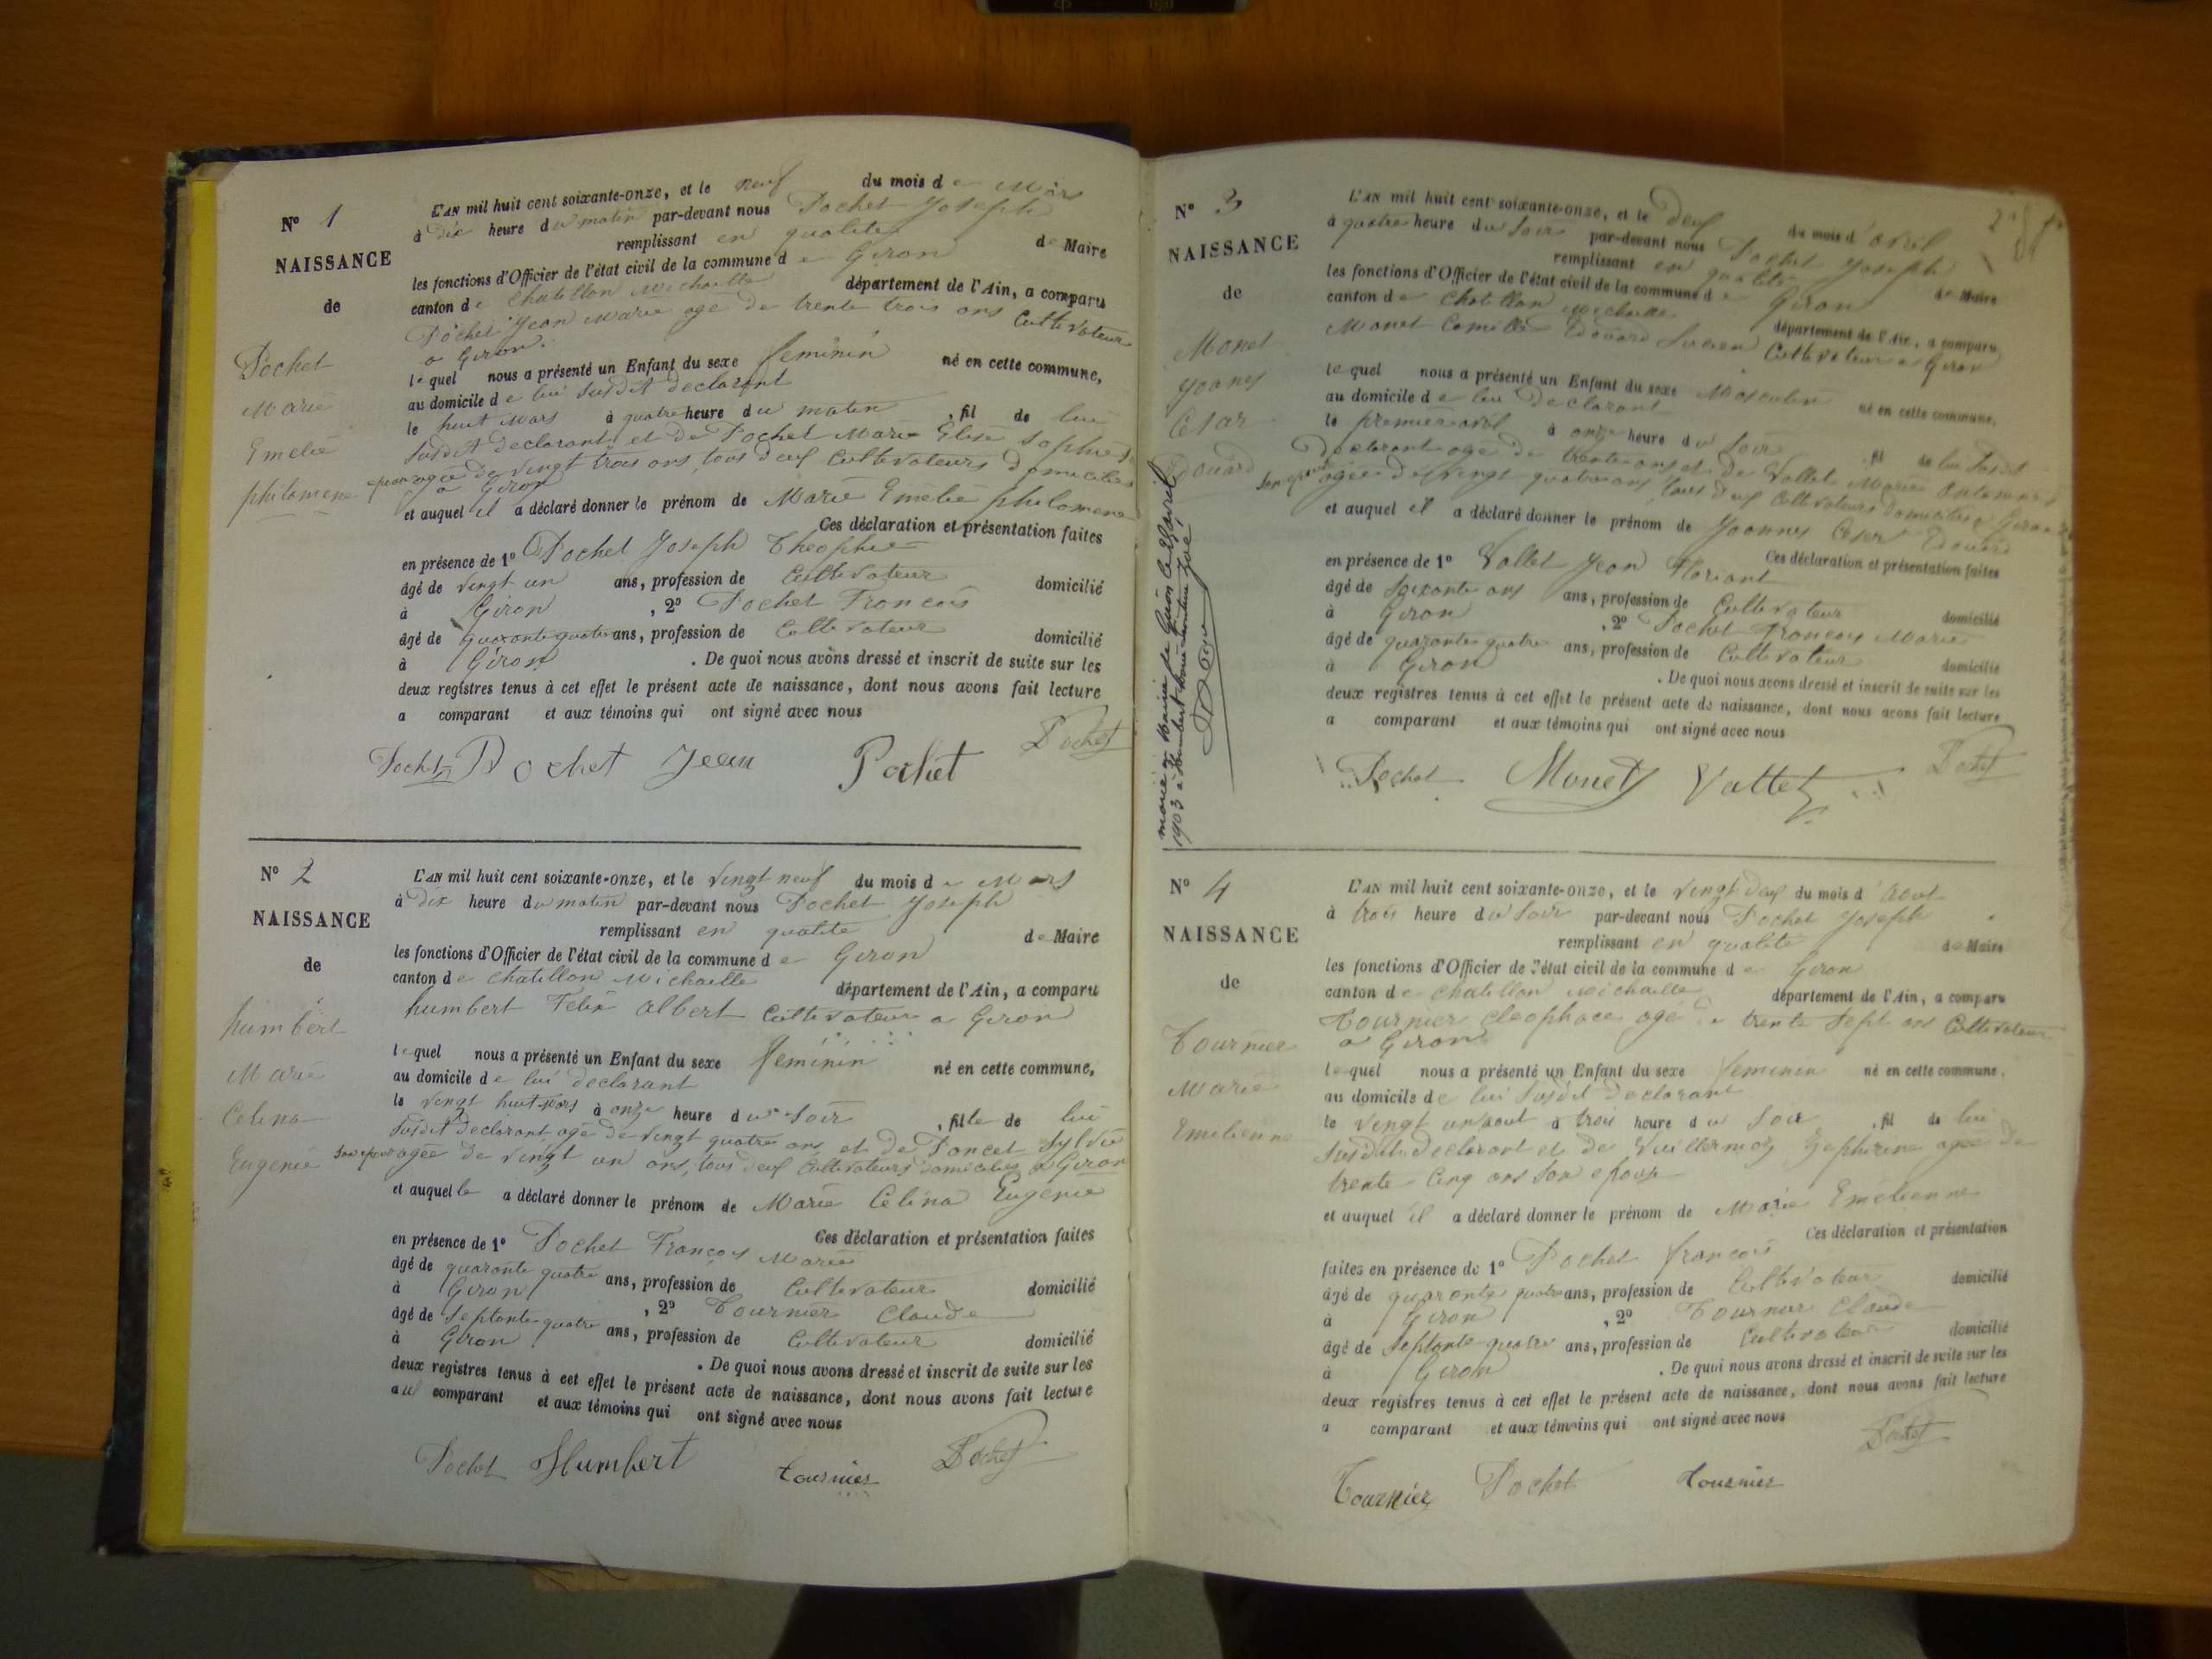 N° 1
NAISSANCE
de
Pochet
Marie
Emelie
philomene
L'AN mil huit cent soixante-onze, et le neuf du mois de Mars
à dix heure du matin par-devant nous Pochet Joseph
remplissant en qualité de Maire
les fonctions d'Officier de l'état civil de la commune de Giron
canton de Chatillon Michaille département de l'Ain, a comparu
Pochet Jean Marie age de trente trois ans Cultivateur
a Giron.
lequel nous a présenté un Enfant du sexe feminin né en cette commune,
au domicile de lui susdit declarant
le huit Mars à quatre heure du matin, fil de lui
susdit declarant et de Pochet Marie Elise Sophie
agée de vingt trois ans, tous deux Cultivateurs domiciliés
a Giron
et auquel il a déclaré donner le prénom de Marie Emelie philomene
Ces déclaration et présentation faites
en présence de 1° Pochet Joseph Theophie
âgé de vingt un ans, profession de Cultivateur domicilié
à Giron, 2° Pochet Francois
âgé de quarante quatre ans, profession de Cultivateur domicilié
à Giron. De quoi nous avons dressé et inscrit de suite sur les
deux registres tenus à cet effet le présent acte de naissance, dont nous avons fait lecture
a comparant et aux témoins qui ont signé avec nous
Pochet
Pochet Pochet Jean Pochet
N° 2
NAISSANCE
de
humbert
Marie
Celina
Eugenie
L'AN mil huit cent soixante-onze, et le vingt neuf du mois de Mars
à dix heure du matin par-devant nous Pochet Joseph
remplissant en qualité de Maire
les fonctions d'Officier de l'état civil de la commune de Giron
canton de Chatillon Michaille département de l'Ain, a comparu
humbert Felix albert Cultivateur a Giron
lequel nous a présenté un Enfant du sexe feminin né en cette commune,
au domicile de lui declarant
le vingt huit Mars à onze heure du soir, fille de lui
susdit declarant age de vingt quatre ans et de Poncet Sylvie
son epouse agée de vingt un ans, tous deux Cultivateurs domiciliés a Giron
et auquelle a déclaré donner le prénom de Marie Celina Eugenie
Ces déclaration et présentation faites
en présence de 1° Pochet François Marie
âgé de quarante quatre ans, profession de Cultivateur domicilié
à Giron, 2° Tournier Claude
âgé de septante quatre ans, profession de Cultivateur domicilié
à Giron. De quoi nous avons dressé et inscrit de suite sur les
deux registres tenus à cet effet le présent acte de naissance, dont nous avons fait lecture
au comparant et aux témoins qui ont signé avec nous
Pochet Humbert Tournier Pochet
N° 3
NAISSANCE
de
Monet
Joanes
Cesar
Edouard
marié à la Mairie de Giron le avril
1903 à Humbert Marie Zoé,
L'AN mil huit cent soixante-onze, et le deux du mois d'avril
à quatre heure du soir par-devant nous Pochet Joseph
remplissant en qualité de Maire
les fonctions d'Officier de l'état civil de la commune de Giron
canton de Chatillon Michaille département de l'Ain, a comparu
Monet Camille Edouard Lucien Cultivateur a Giron
lequel nous a présenté un Enfant du sexe Masculin né en cette commune,
au domicile de lui declarant
le premier avril à onze heure du soir, fil de lui susdit
declarant age de trente ans et de Vallet Marie
son epouse agée de vingt quatre ans tous deux Cultivateurs domiciliés a Giron
et auquel il a déclaré donner le prénom de Joannes Cesar Edouard
Ces déclaration et présentation faites
en présence de 1° Vallet Jean Floriant
âgé de soixante ans ans, profession de Cultivateur domicilié
à Giron, 2° Pochet Francois Marie
âgé de quarante quatre ans, profession de Cultivateur domicilié
à Giron. De quoi nous avons dressé et inscrit de suite sur les
deux registres tenus à cet effet le présent acte de naissance, dont nous avons fait lecture
a comparant et aux témoins qui ont signé avec nous
Pochet Monet Vallet Pochet
N° 4
NAISSANCE
de
Tournier
Marie
Emelienne
L'AN mil huit cent soixante-onze, et le vingt deux du mois d'aout
à trois heure du soir par-devant nous Pochet Joseph
remplissant en qualité de Maire
les fonctions d'Officier de l'état civil de la commune de Giron
canton de Chatillon Michaille département de l'Ain, a comparu
Tournier Cleophace agé de trente sept ans Cultivateur
a Giron
lequel nous a présenté un Enfant du sexe feminin né en cette commune,
au domicile de lui susdit declarant
le vingt un aout à trois heure du soir, fil de lui
susdit declarant et de Vuillermoz Zephirine agée de
trente cinq ans son epouse
et auquel il a déclaré donner le prénom de Marie Emelienne
Ces déclaration et présentation
faites en présence de 1° Pochet francois
âgé de quarante quatre ans, profession de Cultivateur domicilié
à Giron, 2° Tournier Claude
âgé de septante quatre ans, profession de Cultivateur domicilié
à Giron. De quoi nous avons dressé et inscrit de suite sur les
deux registres tenus à cet effet le présent acte de naissance, dont nous avons fait lecture
a comparant et aux témoins qui ont signé avec nous
Pochet
Tournier Pochet Tournier